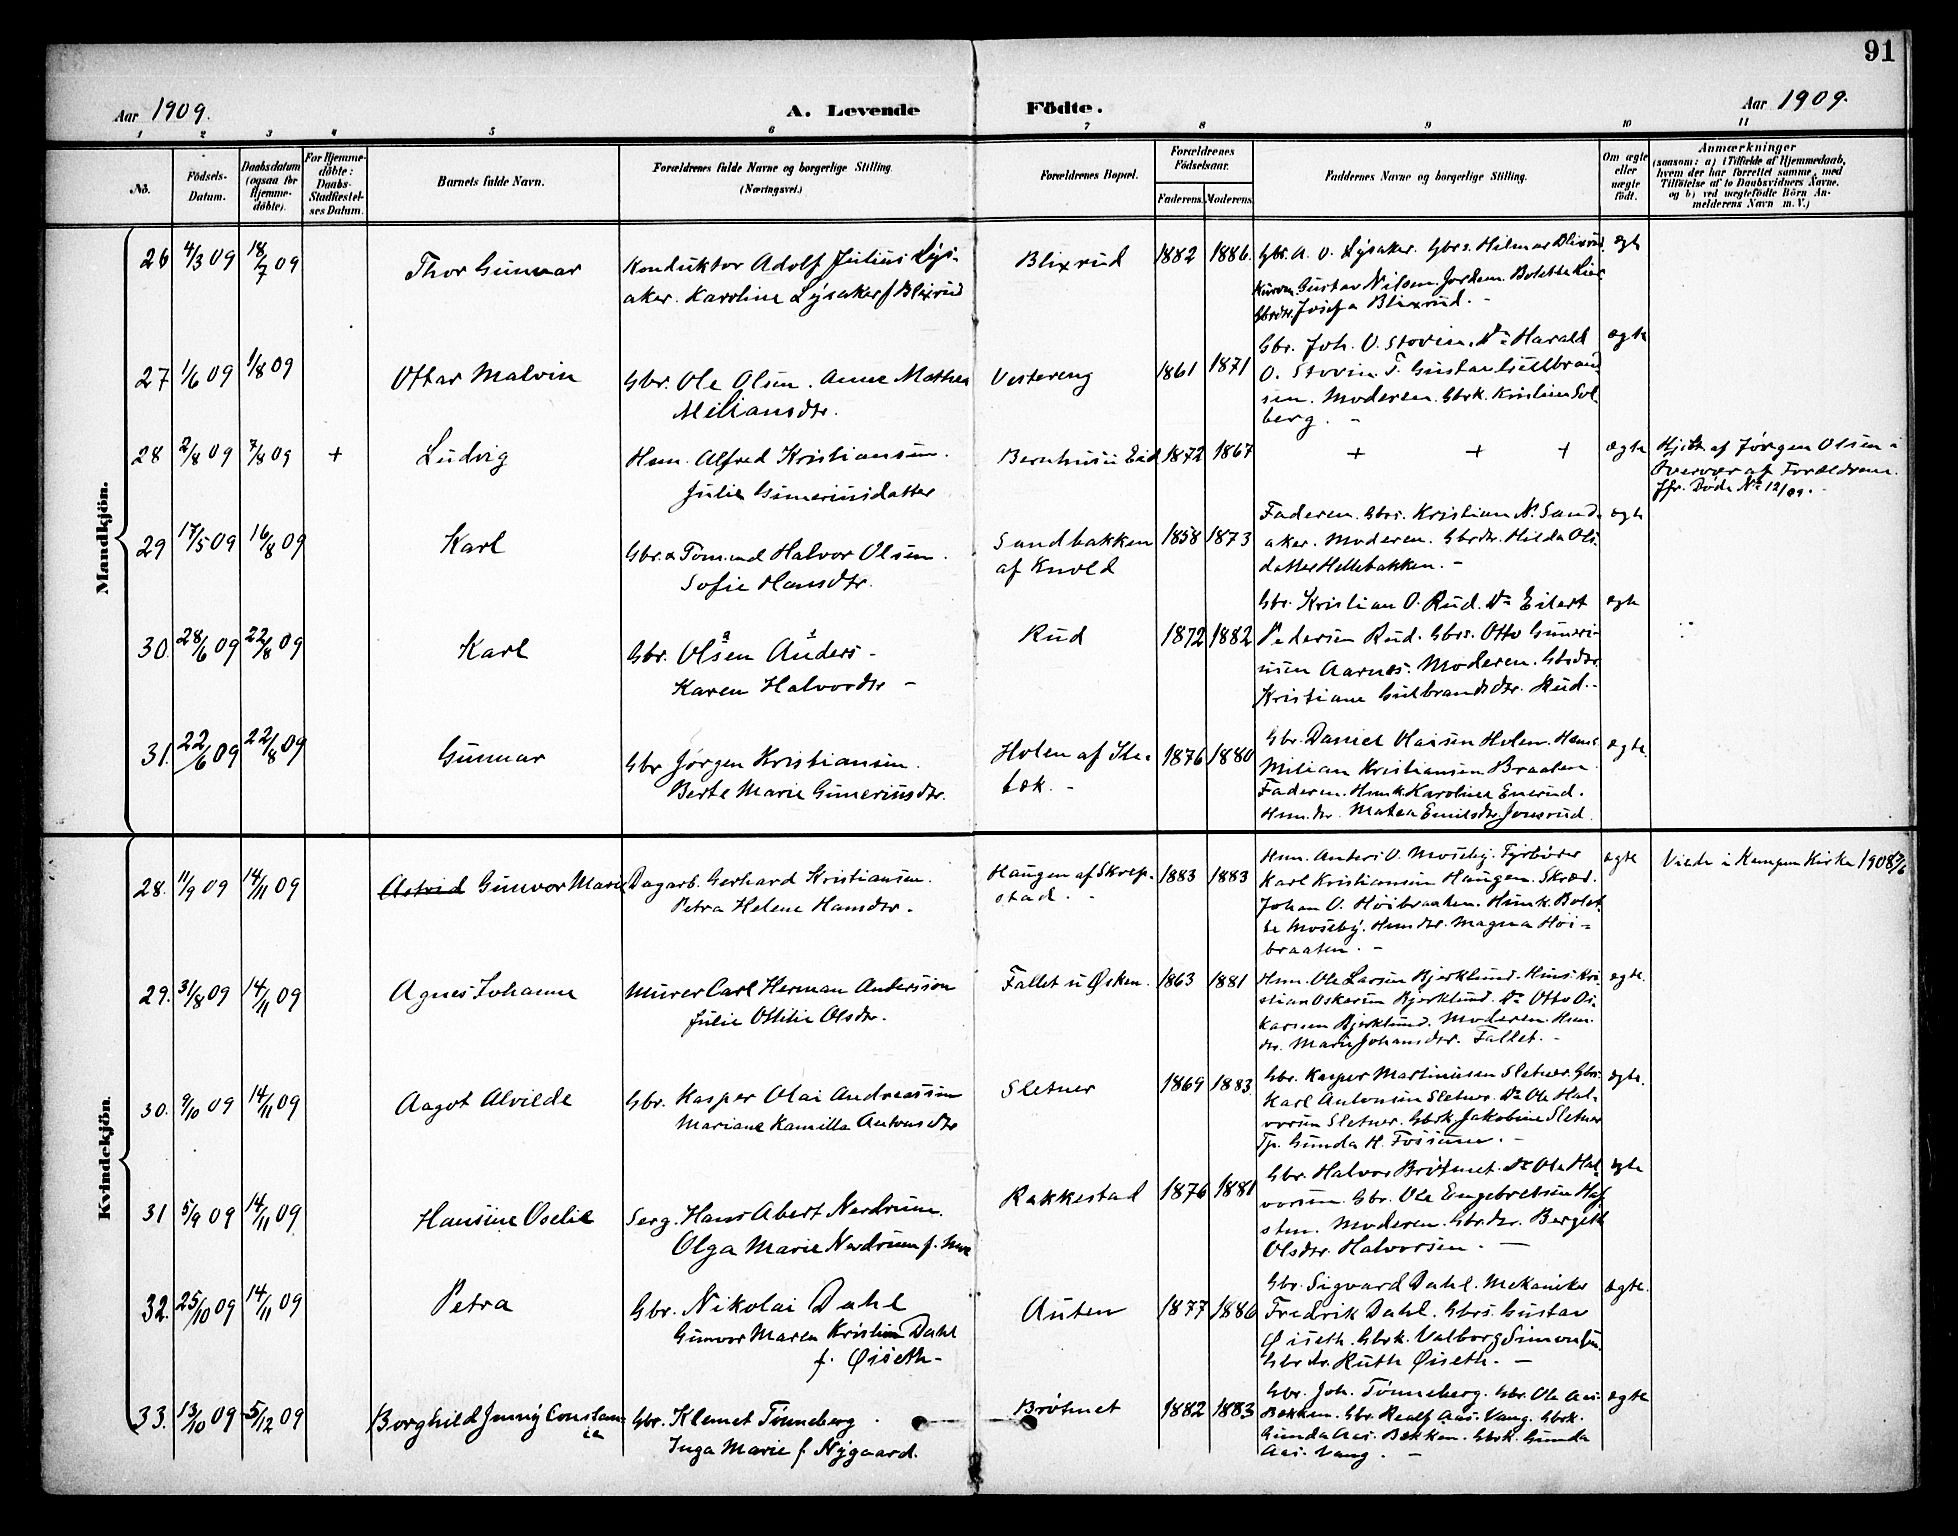 91
Aar 1909.
A. Levende Födte.
Aar 1909.
1 2 3 4 5 6 7 8 9 10 11
No.
Födsels-Datum.
Daabsdatum (ogsaa for Hjemmedöbte).
For Hjemmedöbte: Daabs-Stadfæstelses Datum.
Barnets fulde Navn.
Forældrenes fulde Navne og borgerlige Stilling.
(Næringsvei.)
Forældrenes Bopæl.
Forældrenes Födselsaar.
Faderens. Moderens.
Faddernes Navne og borgerlige Stilling.
Om ægte eller uægte födt.
Anmærkninger
(saasom: a) i Tilfælde af Hjemmedaab, hvem der har forrettet samme, med Tilföielse af to Daabsvidners Navne, og b) ved uægtefödte Börn Anmelderens Navn m. V.)
Mandkjön.
26 4/3 09 18/7 09 Thor Gunnar
Konduktör Adolf Julius Lys-
aker. Karoline Lysaker f Blixrud
Blixrud 1882 1886.
Gbr. A. O. Lysaker. Gbrs. Hilmar Blixrud
Gustav Nilsen Jordem. Bolette Lier
Gbrdtr. Josefa Blixrud. -
ægte
27 1/6 09 1/8 09 Ottar Malvin
Gbr. Ole Olsen. Anne Mathea
Miliansdtr.
Vestereng 1861 1871
Gbr. Joh. O. Stovin. Do Harald
O. Stovin. T. Gustav Gullbrand
sen. Moderen. Gbrk. Kristine Sol
berg. -
ægte
28 2/8 09 7/8 09 + Ludvig
Hsm. Alfred Kristiansen.
Julie Guneriusdatter
Bernhus u Eid 1872 1867
+ + +
ægte
Hjdt. af Jørgen Olsen i
Overvær af Forældrene.
Jfr. Døde No 12/09. -
29 17/5 09 16/8 09 Karl
Gbr. & Tømmd Halvor Olsen.
Sofie Hansdtr.
Sandbakken
af Knold
1858 1873
Faderen. Gbrs. Kristian N. Sand-
aker. Moderen. Gbrdtr. Hilda Ols-
datter Hellebakken. -
ægte
30. 28/6 09 22/8 09 Karl
Gbr. Olsen Anders -
Karen Halvordtr -
Rud 1872 1882
Gbr. Kristian O. Rud. Do Eilert
Pedersen Rud. Gbrs. Otto Guneri-
usen Aarnes. Moderen. Gbrdtr.
Kristiane Gulbrandsdtr. Rud. -
ægte
31. 22/6 09 22/8 09 Gunnar
Gbr Jørgen Kristiansen.
Berte Marie Guneriusdtr.
Holen af Ske-
bæk. -
1876 1880
Gbr. Daniel Olaisen Holen. Hsms
Milian Kristiansen Braaten.
Faderen. Hsmk. Karoline Enerud.
Hsm.dtr. Matea Emilsdtr Jonsrud.
ægte.
Kvindekjön.
28. 11/9 09 14/11 09 Astrid Gunvor Marie
Dagarb. Gerhard Kristiansen.
Petra Helene Hansdtr.
Haugen af Skrep-
stad. -
1883 1883
Hsm. Anders O. Moseby. Fyrbøder
Karl Kristiansen Haugen. Skræd.
Johan O. Høibraaten. Hsmk. Bolet-
te Moseby. Hsmdtr. Magna Høi-
braaten. -
ægte
Viede i Kampen Kirke 1908
29. 3/8 09 14/11 09 Agnes Johanne
Murer Carl Herman Andersson
Julie Ottilie Olsdtr.
Fallet u Øsken. 1863 1881
Hsm. Ole Larsen Bjerklund. Hsms. Kri-
stian Oskarsen Bjerklund. Do Otto Os-
karsen Bjerklund. Moderen. Hsm.
dtr. Marie Johansdtr. Fallet. -
ægte.
30. 9/10 09 14/11 09 Aagot Alvilde
Gbr. Kasper Olai Andreassen
Mariane Kamilla Antonsdtr
Sletner 1869 1883.
Gbr. Kasper Martinusen Sletner. Gbrs.
Karl Antonsen Sletner. Do Ole Hal-
vorsen Sletner. Gbrk Jakobine Sletner
Tp. Gunda H. Fossum. -
ægte.
31 5/9 09 14/11 09 Hansine Oselie
Serg. Hans Abert Nerdrum.
Olga Marie Nerdrum f. Moe
Rakkestad 1876 1881
Gbr. Halvor Brøtmet. Do Ole Hal-
vorsen. Gbr. Ole Engebretsen Haf
sten. Moderen. Gbr.dtr. Bergith
Olsdtr. Halvorsen. -
ægte
32. 25/10 09 14/11 09 Petra
Gbr. Nikolai Dahl
Gunvor Maren Kristine Dahl
f. Øiseth -
Auten 1877 1886
Gbr. Sigvard Dahl. Mekaniker
Fredrik Dahl. Gbrs. Gustav
Øiseth. Gbrk. Valborg Simonsen.
Gbrdtr. Ruth Øiseth. -
ægte.
33. 13/10 09 5/12 09 Borghild Jenny Constan-
ce
Gbr. Klemet Tønneberg.
Inga Marie f. Nygaard.
Brøtmet 1882 1883
Gbr. Joh. Tønneberg. Gbr. Ole Aas-
Bekken. Gbr. Realf Aas. Vang. Gbrk.
Gunda Aas. Bekken. Gbrk. Gunda
Aas. Vang. -
ægte